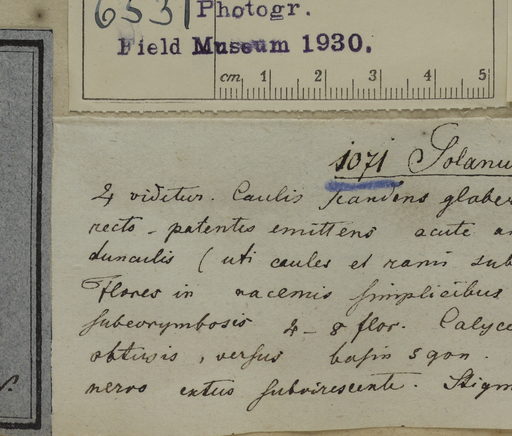 6531 Photogr.
Field Museum 1930.
cm 1 2 3 4 5
1071 Solanu
4 videtur. Caulis scandens glaber
recto-patentes emittens acute an
dunculis (uti caules et rami sub
Flores in racemis simplicibus
subcorymbosis 4-8 flor. Calyce
obtusis, versus basin 5gon.
nervo extus subvirescente. Stigm